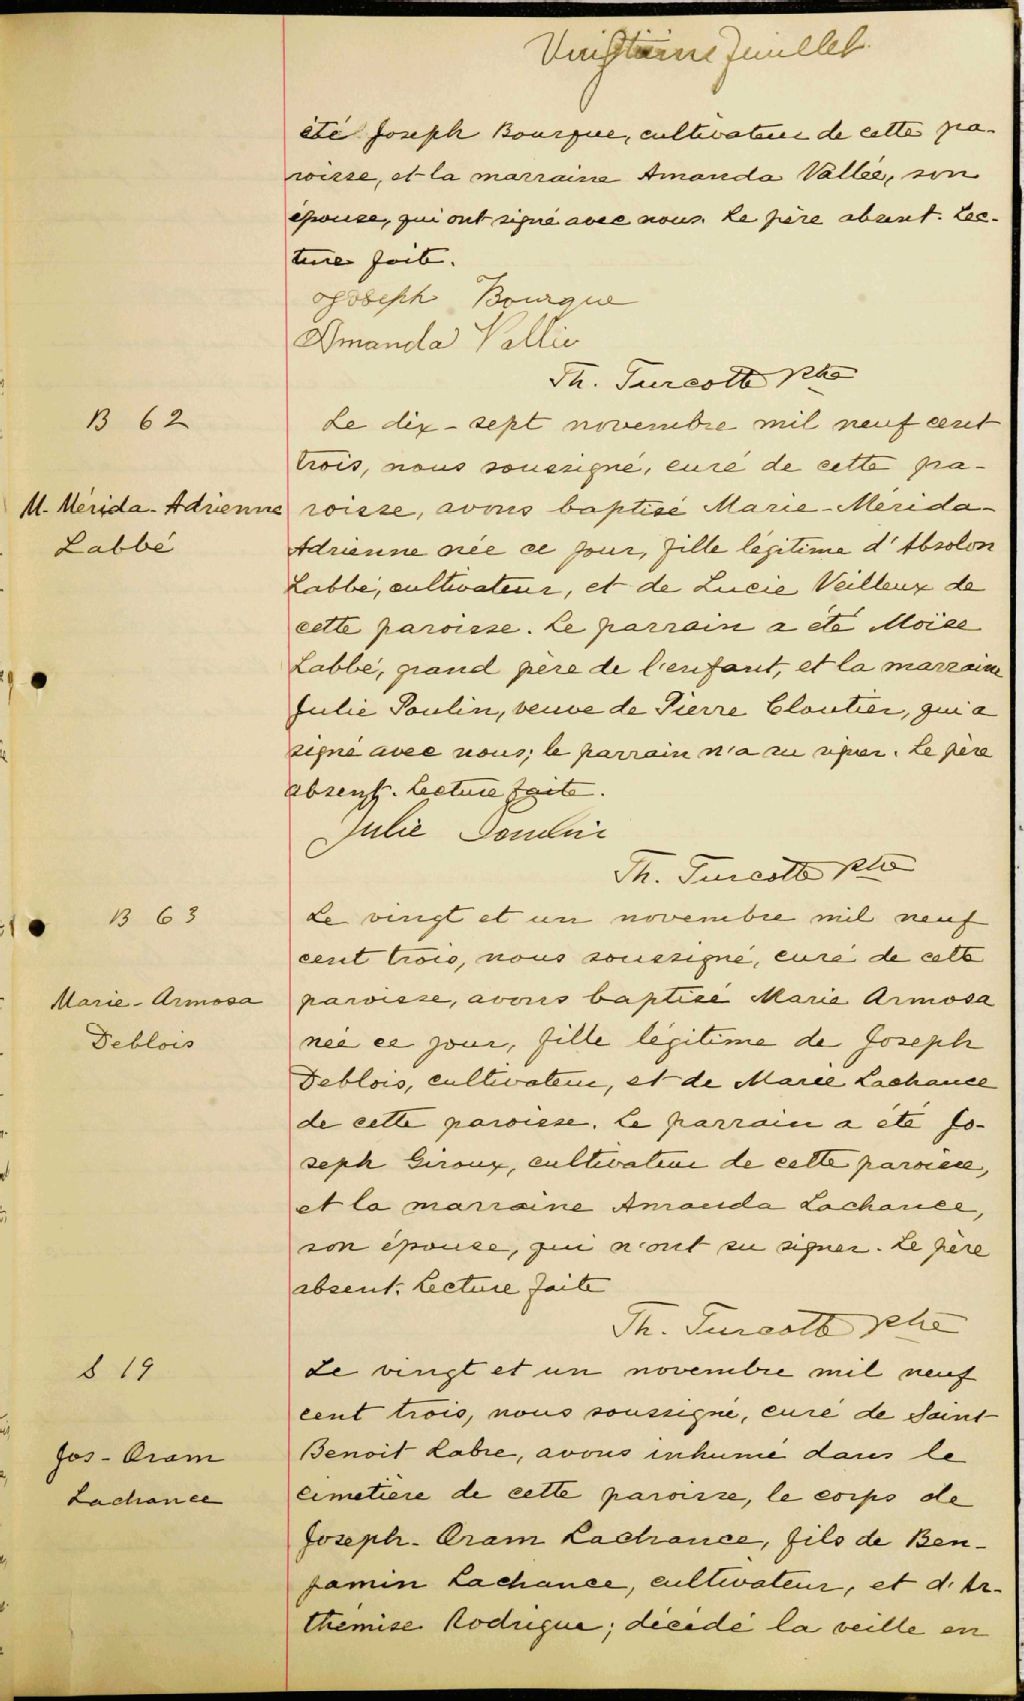 Vingtième feuillet
été Joseph Bourque, cultivateur de cette pa-
roisse, et la marraine Amanda Vallée, son
épouse, qui ont signé avec nous. Le père absent. Lec-
ture faite.
Joseph Bourque
Amanda Vallie
Th. Turcotte Ptre
B 62
Le dix-sept novembre mil neuf cent
trois, nous soussigné, curé de cette pa-
M. Mérida-Adrienne
Labbé
roisse, avons baptisé Marie-Mérida-
Adrienne née ce jour, fille légitime d'Absolon
Labbé, cultivateur, et de Lucie Veilleux de
cette paroisse. Le parrain a été Moïse
Labbé, grand père de l'enfant, et la marraine
Julie Poulin, veuve de Pierre Cloutier, qui a
signé avec nous; le parrain n'a su signer. Le père
absent. Lecture faite.
Julie Poulin
Th. Turcotte Ptre
B 63
Le vingt et un novembre mil neuf
cent trois, nous soussigné, curé de cette
Marie-Armosa
Deblois
paroisse, avons baptisé Marie Armosa
née ce jour, fille légitime de Joseph
Deblois, cultivateur, et de Marie Lachance
de cette paroisse. Le parrain a été Jo-
seph Giroux, cultivateur de cette paroisse,
et la marraine Amanda Lachance,
son épouse, qui n'ont su signer. Le père
absent. Lecture faite
Th. Turcotte Ptre
S 19
Le vingt et un novembre mil neuf
cent trois, nous soussigné, curé de Saint
Jos-Oram
Lachance
Benoit Labre, avons inhumé dans le
cimetière de cette paroisse, le corps de
Joseph-Oram Lachance, fils de Ben-
jamin Lachance, cultivateur, et d'Ar-
thémise Rodrigue; décédé la veille en